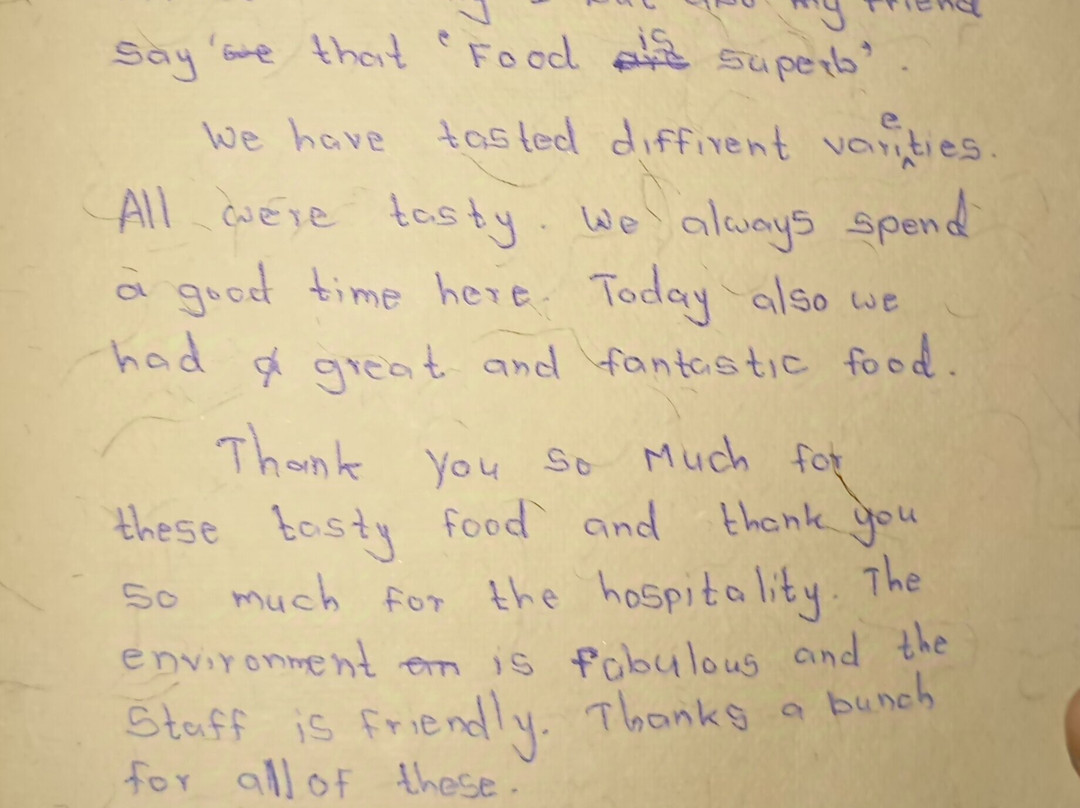 my friend
say that 'Food is superb'.
We have tasted diffirent varieties.
All were tasty. We always spend
a good time here. Today also we
had a great and fantastic food.
Thank you so Much for
these tasty food and thank you
so much for the hospitality. The
environment is fabulous and the
Staff is friendly. Thanks a bunch
for all of these.